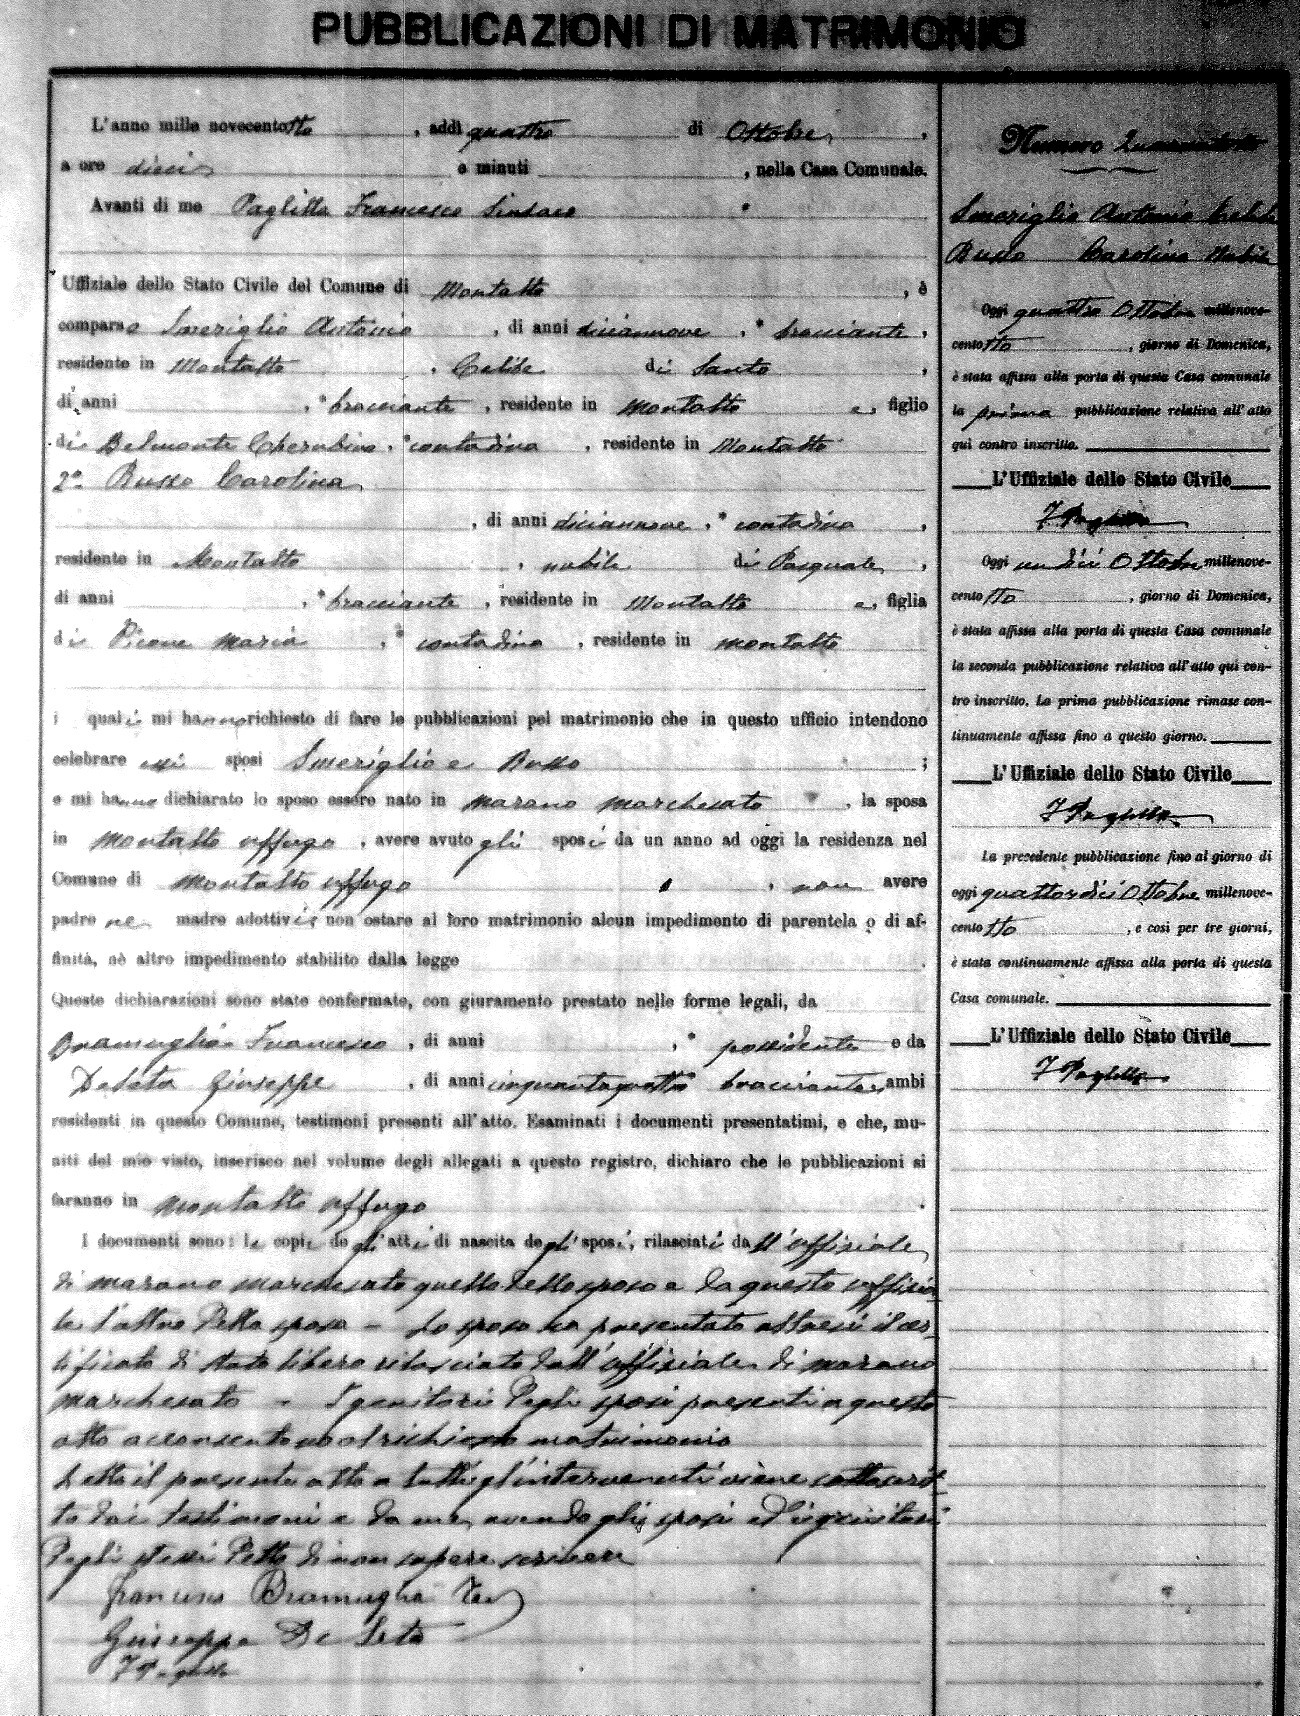 PUBBLICAZIONI DI MATRIMONIO
L'anno mille novecentotto, addì quattro di Ottobre,
a ore dieci e minuti , nella Casa Comunale.
Avanti di me Paglilla Francesco Sindaco
Uffiziale dello Stato Civile del Comune di Montalto , è
comparso Smeriglio Antonio , di anni diciannove , bracciante ,
residente in Montalto , Celibe di Santo ,
di anni , bracciante , residente in Montalto e , figlio
di Belmonte Cherubina , contadina , residente in Montalto
2º Russo Carolina
, di anni diciannove , contadina ,
residente in Montalto , nubile di Pasquale ,
di anni , bracciante , residente in Montalto e , figlia
di Picone Maria , contadina , residente in Montalto
i quali mi hanno richiesto di fare le pubblicazioni pel matrimonio che in questo ufficio intendono
celebrare essi sposi Smeriglio e Russo ;
e mi hanno dichiarato lo sposo essere nato in Marano Marchesato , la sposa
in Montalto Uffugo , avere avuto gli sposi da un anno ad oggi la residenza nel
Comune di Montalto Uffugo , non avere
padre ne madre adottivi e non ostare al loro matrimonio alcun impedimento di parentela o di af-
finità, nè altro impedimento stabilito dalla legge
Queste dichiarazioni sono state confermate, con giuramento prestato nelle forme legali, da
Bramuglia Francesco , di anni , possidente e da
Deseta Giuseppe , di anni cinquantaquattro bracciante, ambi
residenti in questo Comune, testimoni presenti all'atto. Esaminati i documenti presentatimi, e che, mu-
niti del mio visto, inserisco nel volume degli allegati a questo registro, dichiaro che le pubblicazioni si
faranno in Montalto Uffugo .
I documenti sono: le copie degl'atti di nascita degl'sposi, rilasciati dall'uffiziale
di Marano Marchesato quello dello sposo e da questo uffizia
le l'altro della sposa - Lo sposo ha presentato altresì il cer-
tificato di stato libero rilasciato dall'uffiziale di Marano
Marchesato - I genitori degli sposi presenti a questo
atto acconsentono al richiesto matrimonio
Letto il presente atto a tutti gl'intervenuti viene sottoscrit-
to dai testimoni e da me, avendo gli sposi ed i genitori
degli stessi detto di non sapere scrivere
Francesco Bramuglia
Giuseppe De Seta
F Paglilla
Numero
Smeriglio Antonio Celibe
Russo Carolina Nubile
Oggi quattro Ottobre millenove-
centotto , giorno di Domenica,
è stata affissa alla porta di questa Casa comunale
la prima pubblicazione relativa all'atto
qui contro inscritto.
L'Uffiziale dello Stato Civile
F Paglilla
Oggi undici Ottobre millenove-
centotto , giorno di Domenica,
è stata affissa alla porta di questa Casa comunale
la seconda pubblicazione relativa all'atto qui con-
tro inscritto. La prima pubblicazione rimase con-
tinuamente affissa fino a questo giorno.
L'Uffiziale dello Stato Civile
F Paglilla
La precedente pubblicazione fino al giorno di
oggi quattordici Ottobre millenove-
centotto , e così per tre giorni,
è stata continuamente affissa alla porta di questa
Casa comunale.
L'Uffiziale dello Stato Civile
F Paglilla